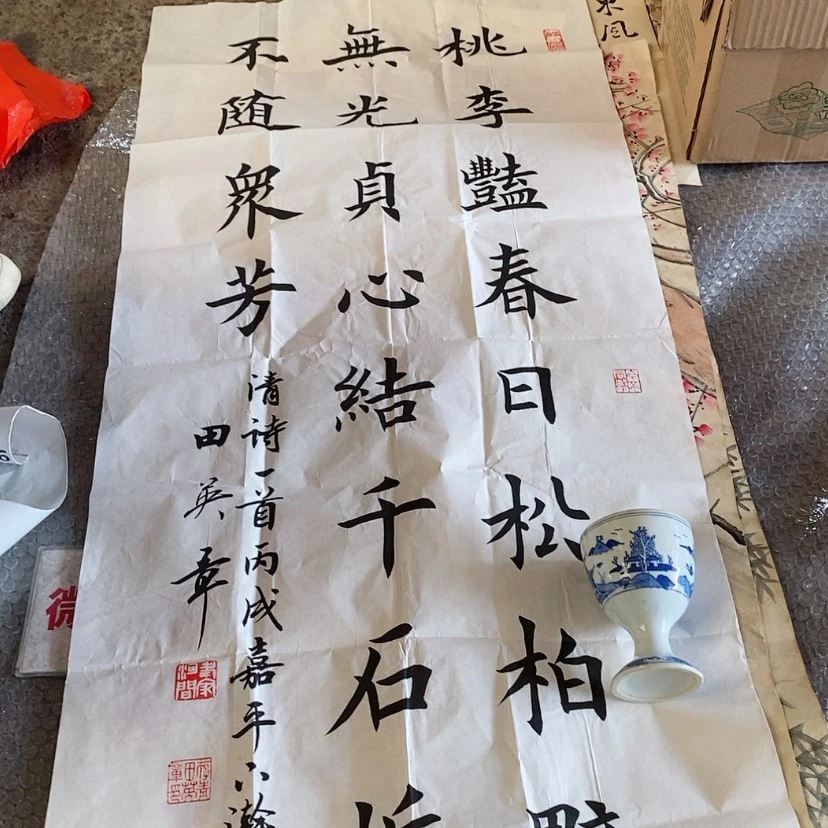 桃李豔春日松柏
無光貞心結千石
不随衆芳
清诗一首丙戌嘉平下瀚
田英章
東风